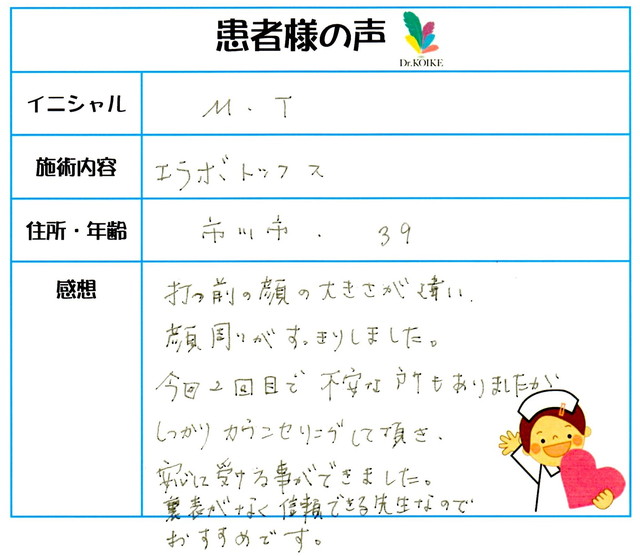 患者様の声
Dr.KOIKE
イニシャル M・T
施術内容 エラボトックス
住所・年齢 市川市 . 39
感想
打つ前の顔の大きさが違い、
顔周りがすっきりしました。
今回2回目で不安な所もありましたが
しっかりカウンセリングして頂き、
安心に受ける事ができました。
裏表がなく信頼できる先生なので
おすすめです。